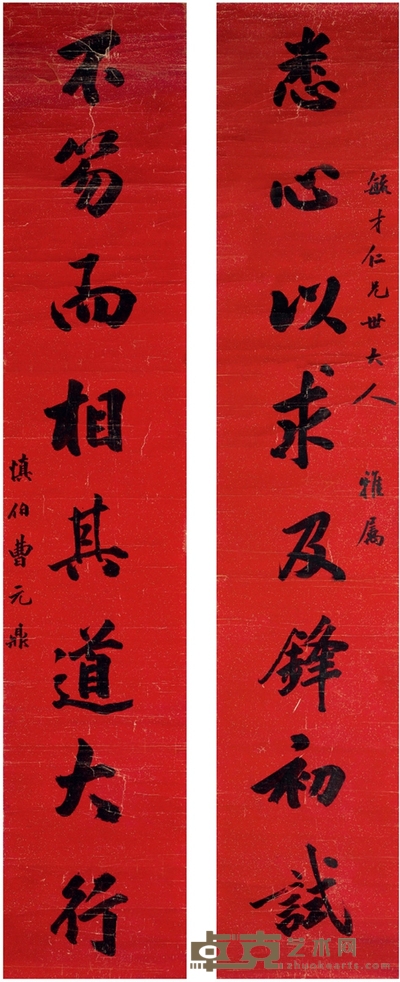 毓才仁兄世大人 雅屬
悉心以求及鋒初試
不笏而相其道大行
慎伯曹元鼎
卓克艺术网